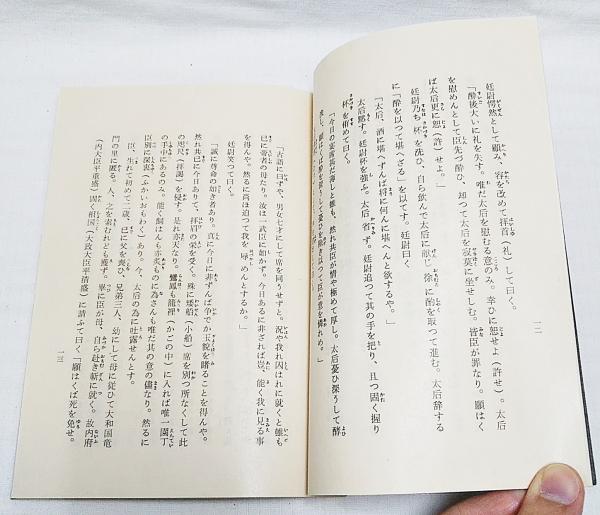 廷尉愕然として顧み、容を改めて拝首（礼）して曰く。
「酔後大いに礼を失す。唯だ太后を慰むる意のみ。幸ひに恕せよ（許せ）。太后
を慰めんとして臣先づ酔ひ、却つて太后を寂寞に坐せしむ。皆臣が罪なり。願はく
ば太后更に恕（許）せよ。」
廷尉乃ち杯を洗ひ、自ら飲んで太后に献じ、徐に酌を取つて進む。太后辞する
に「酔を以つて堪へざる」を以てす。廷尉曰く
「太后、酒に堪へずんば将に何んに堪へんと欲するや。」
太后黙す。廷尉杯を強ふ。太后省ず。廷尉迫つて其の手を把り、且つ固く握り
杯を侑めて曰く。
「今日の宴肴其だ薄しと雖も、然れ共臣が情や極めて厚し。太后憂ひ深うして酔
一二
「古語に曰ずや、男女七才にして席を同うせずと。況や我れ囚はれに就くと雖も
已に寡者の母たり。汝は一武臣に如かず。今日あるに非されば豈、能く我に見る事
を得んや。然るに尚ほ迫つて我を辱めんとするか。」
廷尉笑つて曰く。
「誠に尊命の如き者あり。真に今日に非ずんば争でか玉貌を睹ることを得んや。
然れ共已に今日ありて、拝眉の栄を受く。殊に矮船（小船）席を別つ所なくして此
の咫尺（袴褐）を侵す。是れ亦天なり。鸞鳳も籠裡（かごの中）に入れば唯一園丁
の手中にあるのみ。能く飼はんも亦炙ものに為さんも唯だ其の意の儘なり。然るに
臣別に深衷（ふかいおもわく）あり。今、太后の為に吐露せんとす。
臣、生れて初めて二歳、已に父を喪ひ、兄弟三人、幼にして母に従ひて大和国竜
門の里に匿る。人、之を索むれども獲ず。畢に臣が母、自ら赴き斬に就く。故内府
（内大臣平重盛）固く相国（大政大臣平清盛）に請ふて曰く「願はくば死を免せ。
一三